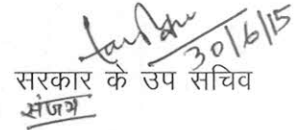 30/6/15
सरकार के उप सचिव
संजय